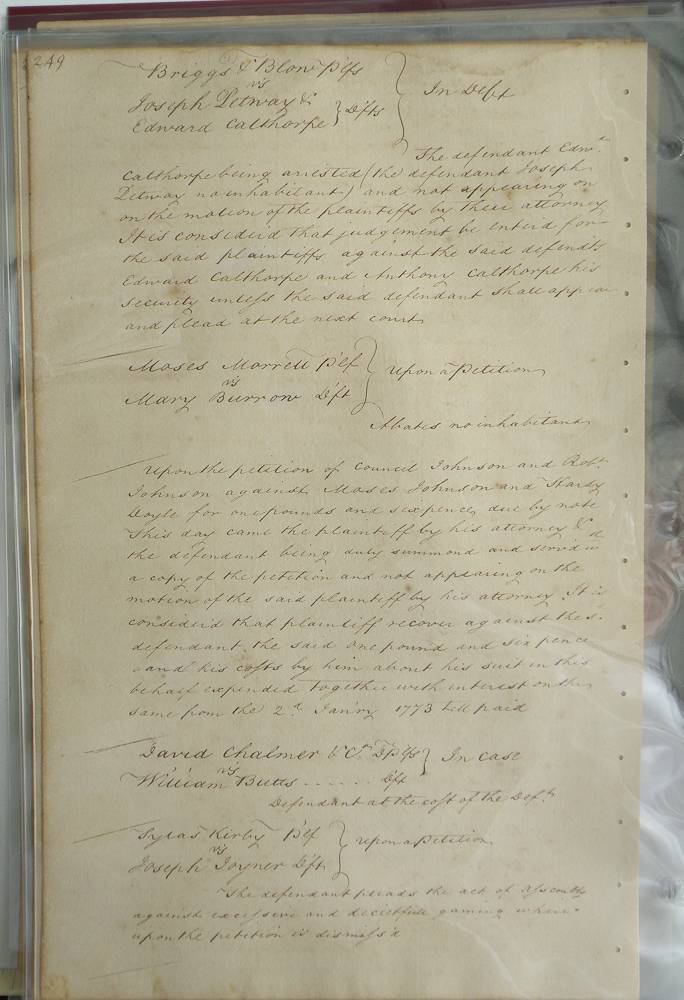 249
Briggs & Blow Plfs
vs
Joseph Petway &
Edward Calthorpe } Dfts } In Debt
The defendant Edwd.
Calthorpe being arrested (the defendant Joseph
Petway no inhabitant) and not appearing on
on the motion of the plaintiffs by their attorney
It is consider'd that judgement be enter'd for
the said plaintiffs against the said defendts
Edward Calthorpe and Anthony Calthorpe his
security unless the said defendant shall appear
and plead at the next court
Moses Morrell Plf
vs
Mary Burrow Dft } upon a Petition
Abates no inhabitant
Upon the petition of Council Johnson and Robt.
Johnson against Moses Johnson and Hardy
Doyle for one pounds and sixpence due by note
This day came the plaintiff by his attorney &
the defendant being duly summond and serv'd
a copy of the petition and not appearing on the
motion of the said plaintiff by his attorney It is
consider'd that plaintiff recover against the sd.
defendant the said one pound and six pence
and his costs by him about his suit in this
behalf expended together with interest on the
same from the 2d. Jan'ry 1773 till paid
David Chalmer & Co. Plfs
vs
William Butts . . . . . . Dft } In case
Defendant at the cost of the Deft.
Sylas Kirby Plf
vs
Joseph Joyner Dft } upon a Petition
The defendant pleads the act of assembly
against excessive and decietfull gaming where
upon the petition is dismiss'd